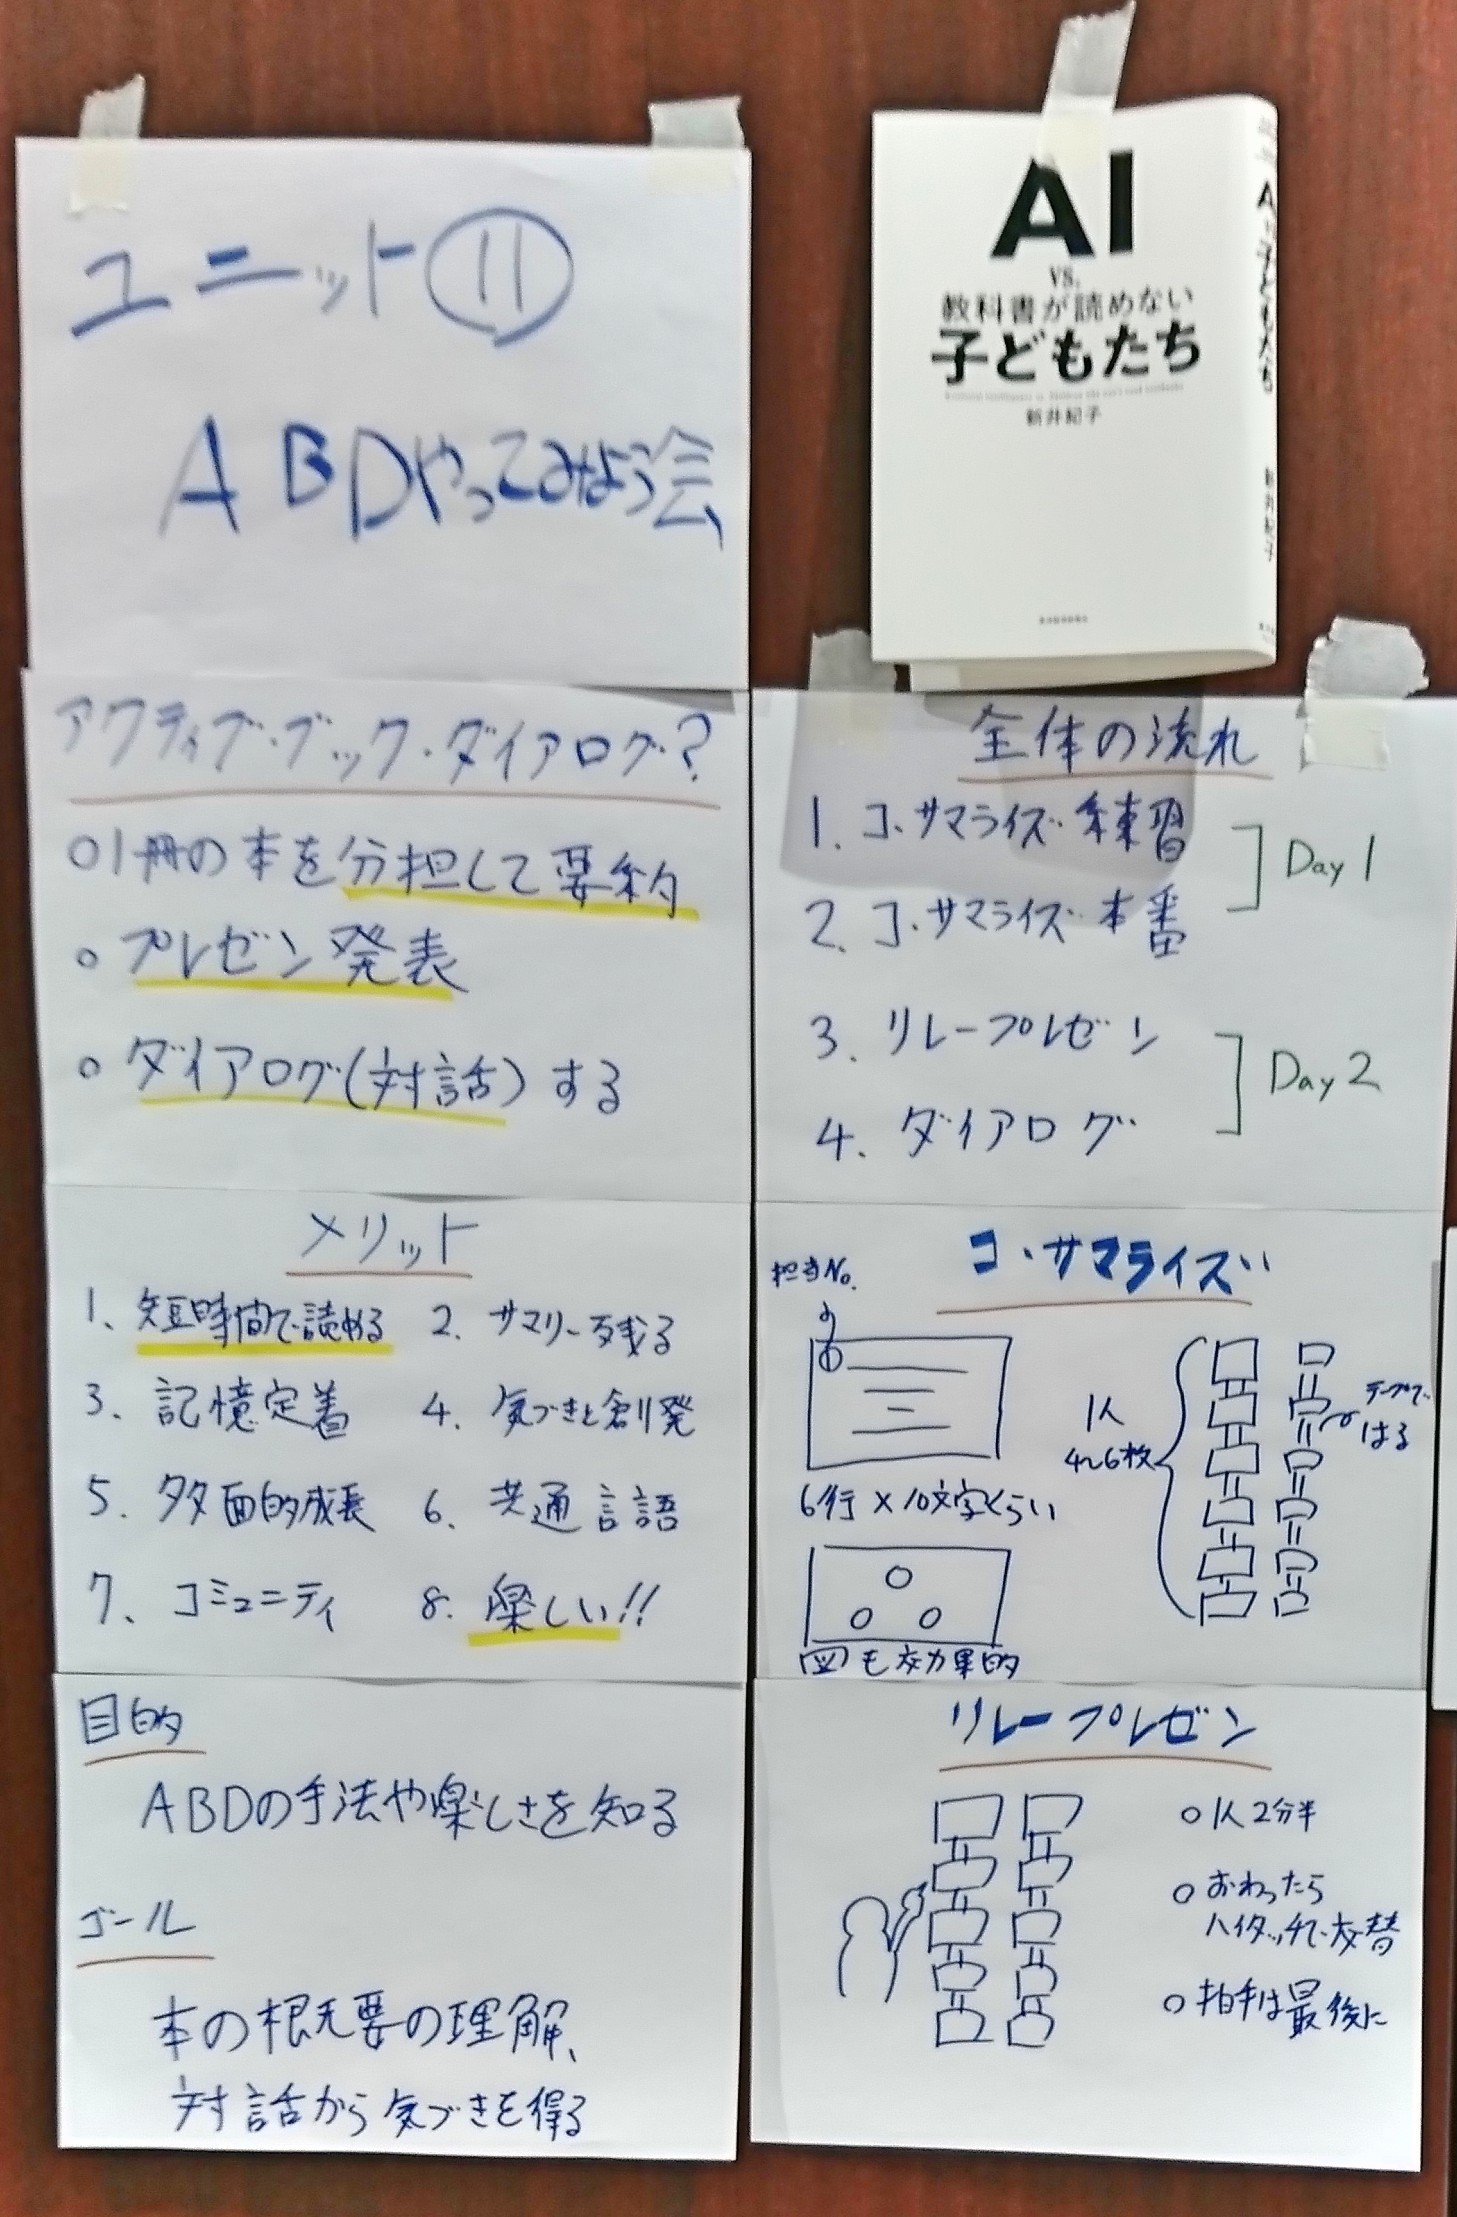 ユニット⑪
ABDやってみよう会
アクティブ・ブック・ダイアログ?
○1冊の本を分担して要約
○プレゼン発表
○ダイアログ(対話)する
メリット
1、短時間で読める 2、サマリー残る
3、記憶定着 4、気づきと創発
5、多面的成長 6、共通言語
7、コミュニティ 8、楽しい!!
目的
ABDの手法や楽しさを知る
ゴール
本の概要の理解、
対話から気づきを得る
AI
vs.
教科書が読めない
子どもたち
新井紀子
AI vs. 子どもたち
新井紀子
全体の流れ
1、コ・サマライズ練習
2、コ・サマライズ本番
Day1
3、リレープレゼン
4、ダイアログ
Day2
コ・サマライズ
担当No.
①
6行×10文字くらい
図も効果的
1人
4〜6枚
テープで
はる
リレープレゼン
○1人2分半
○おわったら
ハイタッチで交替
○拍手は最後に